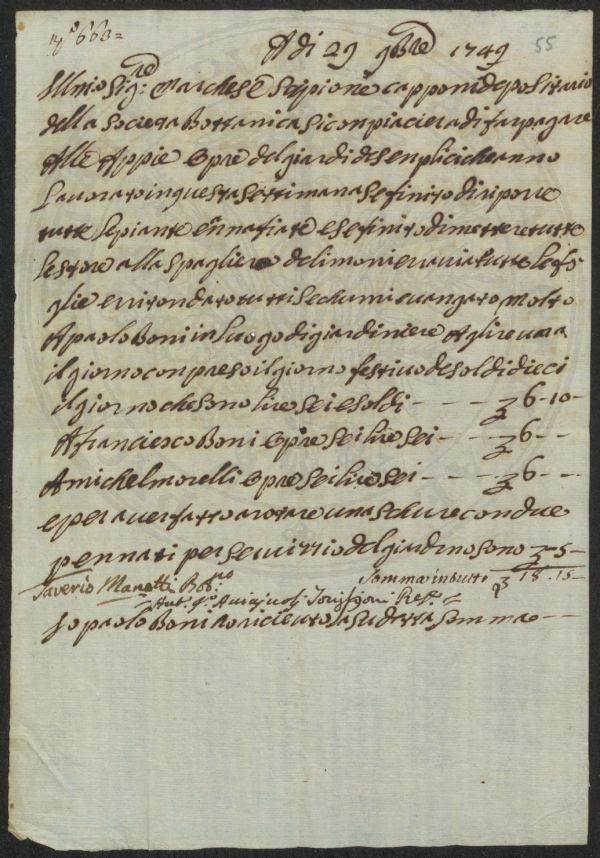 N.o 663=
A di 29 9bre 1749 55
Illmo Sigre: Marchese Scipione capponi depositario
della Società Bottanica si conpiacierà di far pagare
Alle Appie opre del giardi de senplici che anno
Lauorato in questa settimana se finito di riporre
tutte le piante e nnafiate e se finito di mettere tutte
le store alla spagliera de limoni e uauia tutte le fo
glie e uirondato tutti
A paolo Boni in luogo di giardiniere A glire una
il giorno conpreso il giorno festiuo de soldi dieci
il giorno che sono lire sei e soldi - - - - 6-10-
A franciesco Boni opre sei lire sei - - - 6 - -
A michel morelli opre sei lire sei - - - - 6 - -
e per auer fatto arotare una schure con due
pennati per seruizzio del giardino sono - 5-
Somma in tutto 18.15-
Saverio Manetti
Io paolo Boni ò riceuto la sudetta somma - -